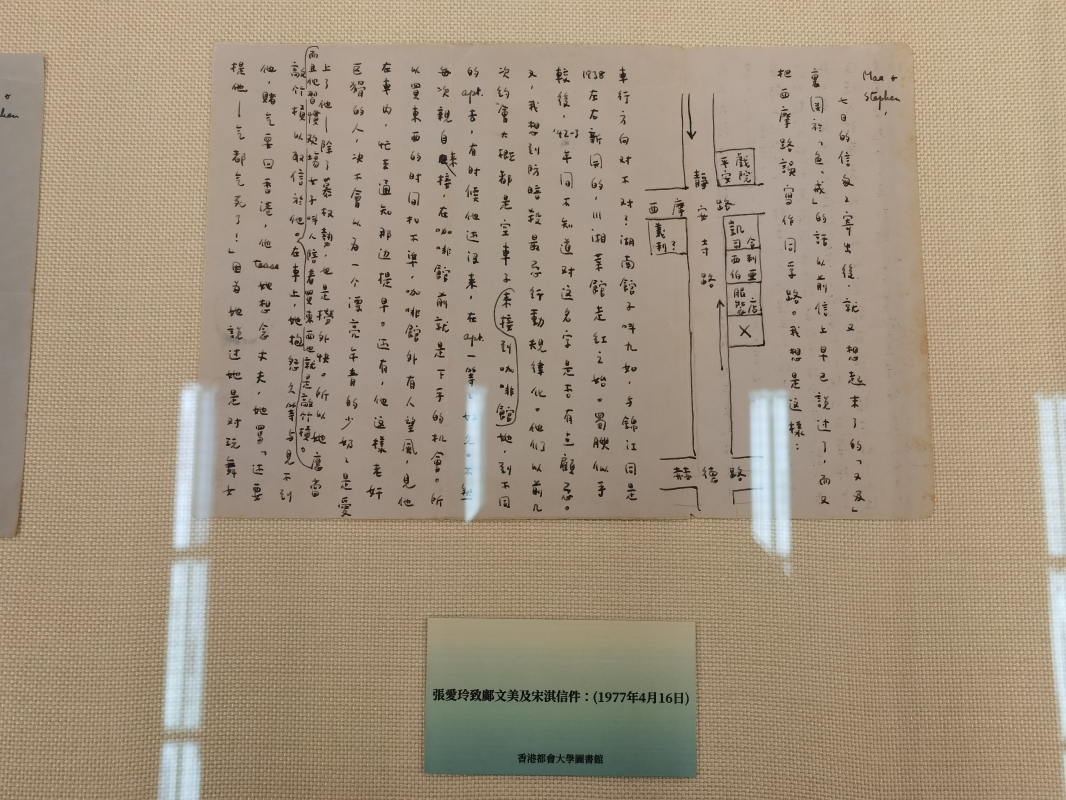 Mae & Stephen,
七日的信匆匆寄出後,就又想起來了的「又及」
裏關於「色,戒」的話以前信上早已說過了,而又
把西摩路誤寫作同孚路。我想是這樣:
平安戲院
靜安寺路
西摩路
義利?
凱司令
西伯利亞
服裝店
X
赫德路
車行方向对不对?湖南館子叫九如,与錦江同是
1938左右新開的,川湘菜館走紅之始。蜀腴似乎
較後,'42-3年间不知道对这名字是否有点顧忌。
又,我想到防暗殺最忌行動規律化。他们以前几
次約會大概都是空車子来接到咖啡館,她,到不同
的apt.去,有時候他还没来,在apt.一等
每次親自来接,在咖啡館前就是下手的机會。所
以買东西的时间扣不準,咖啡館外有人望風,見他
在車內,忙去通知那边提早。还有,他这樣老奸
巨猾的人,决不會以为一个漂亮年青的少奶奶是愛
上了他—除了慕权勢,也是撈外快。所以她應當
而且他習慣欢場女子,叫人陪着買东西也就是敲竹槓。
敲竹槓以取信於他。在車上,她抱怨久等与見不到
他,賭气要回香港,他tease她想念丈夫,她罵「还要
提他—气都气死了!」因为她說过她是对玩舞女
張愛玲致鄺文美及宋淇信件:(1977年4月16日)
香港都會大學圖書館